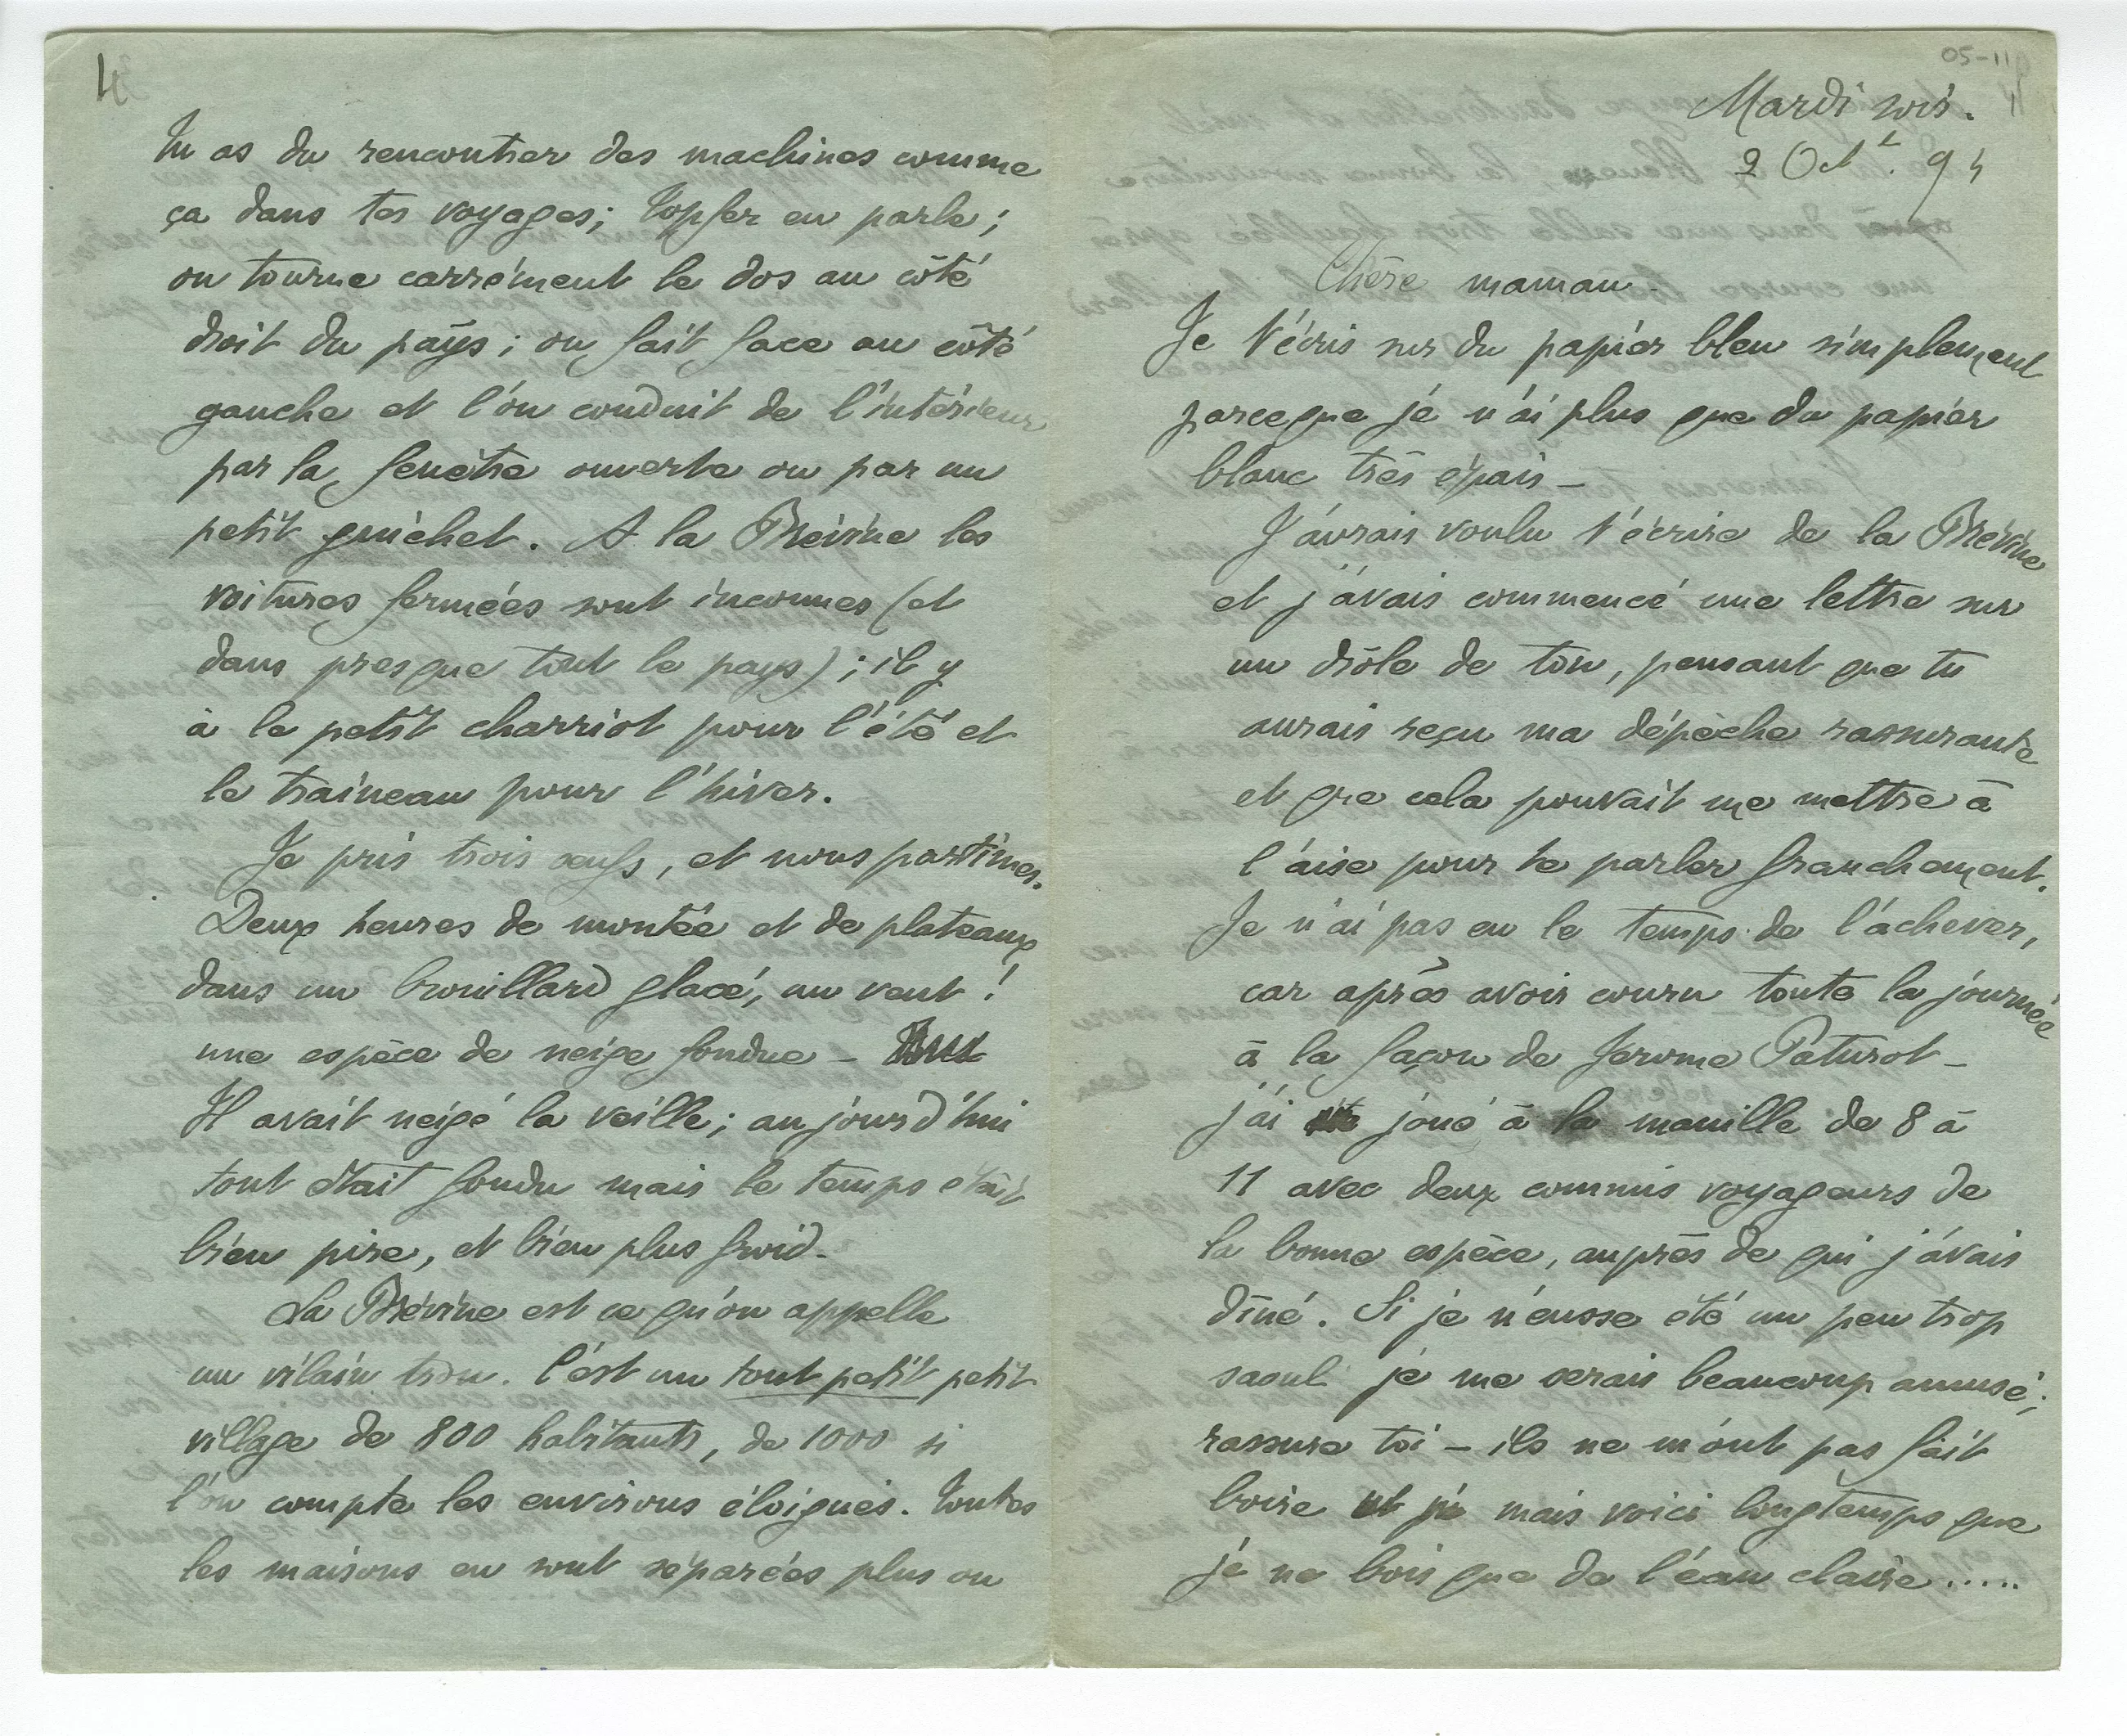 4
Tu as du rencontrer des machines comme
ça dans tes voyages; Töpfer en parle;
on tourne carrément le dos au côté
droit du pays; on fait face au côté
gauche et l'on conduit de l'intérieur
par la fenêtre ouverte ou par un
petit guichet. A la Brévine les
voitures fermées sont inconnues (et
dans presque tout le pays); il y
à le petit charriot pour l'été et
le traineau pour l'hiver.
Je pris trois œufs, et nous partîmes.
Deux heures de montée et de plateaux
dans un brouillard glacé, un vent!
une espèce de neige fondue –
Il avait neigé la veille; aujourd'hui
tout était fondu mais le temps était
bien pire, et bien plus froid.
La Brévine est ce qu'on appelle
un vilain trou. C'est un tout petit petit
village de 800 habitants, de 1000 si
l'on compte les environs éloignés. Toutes
les maisons en sont séparées plus ou
05-11
Mardi soir.
2 Oct. 94
Chère maman.
Je t'écris sur du papier bleu simplement
parceque je n'ai plus que du papier
blanc très épais –
J'aurais voulu t'écrire de la Brévine
et j'avais commencé une lettre sur
un drôle de ton, pensant que tu
aurais reçu ma dépêche rassurante
et que cela pouvait me mettre à
l'aise pour te parler franchement.
Je n'ai pas eu le temps de l'achever,
car après avoir couru toute la journée
à la façon de Jerome Paturot –
j'ai joué à la manille de 8 à
11 avec deux commis voyageurs de
la bonne espèce, auprès de qui j'avais
dîné. Si je n'eusse été un peu trop
saoul je me serais beaucoup amusé;
rassure toi – ils ne m'ont pas fait
boire mais voici longtemps que
je ne bois que de l'eau claire.....